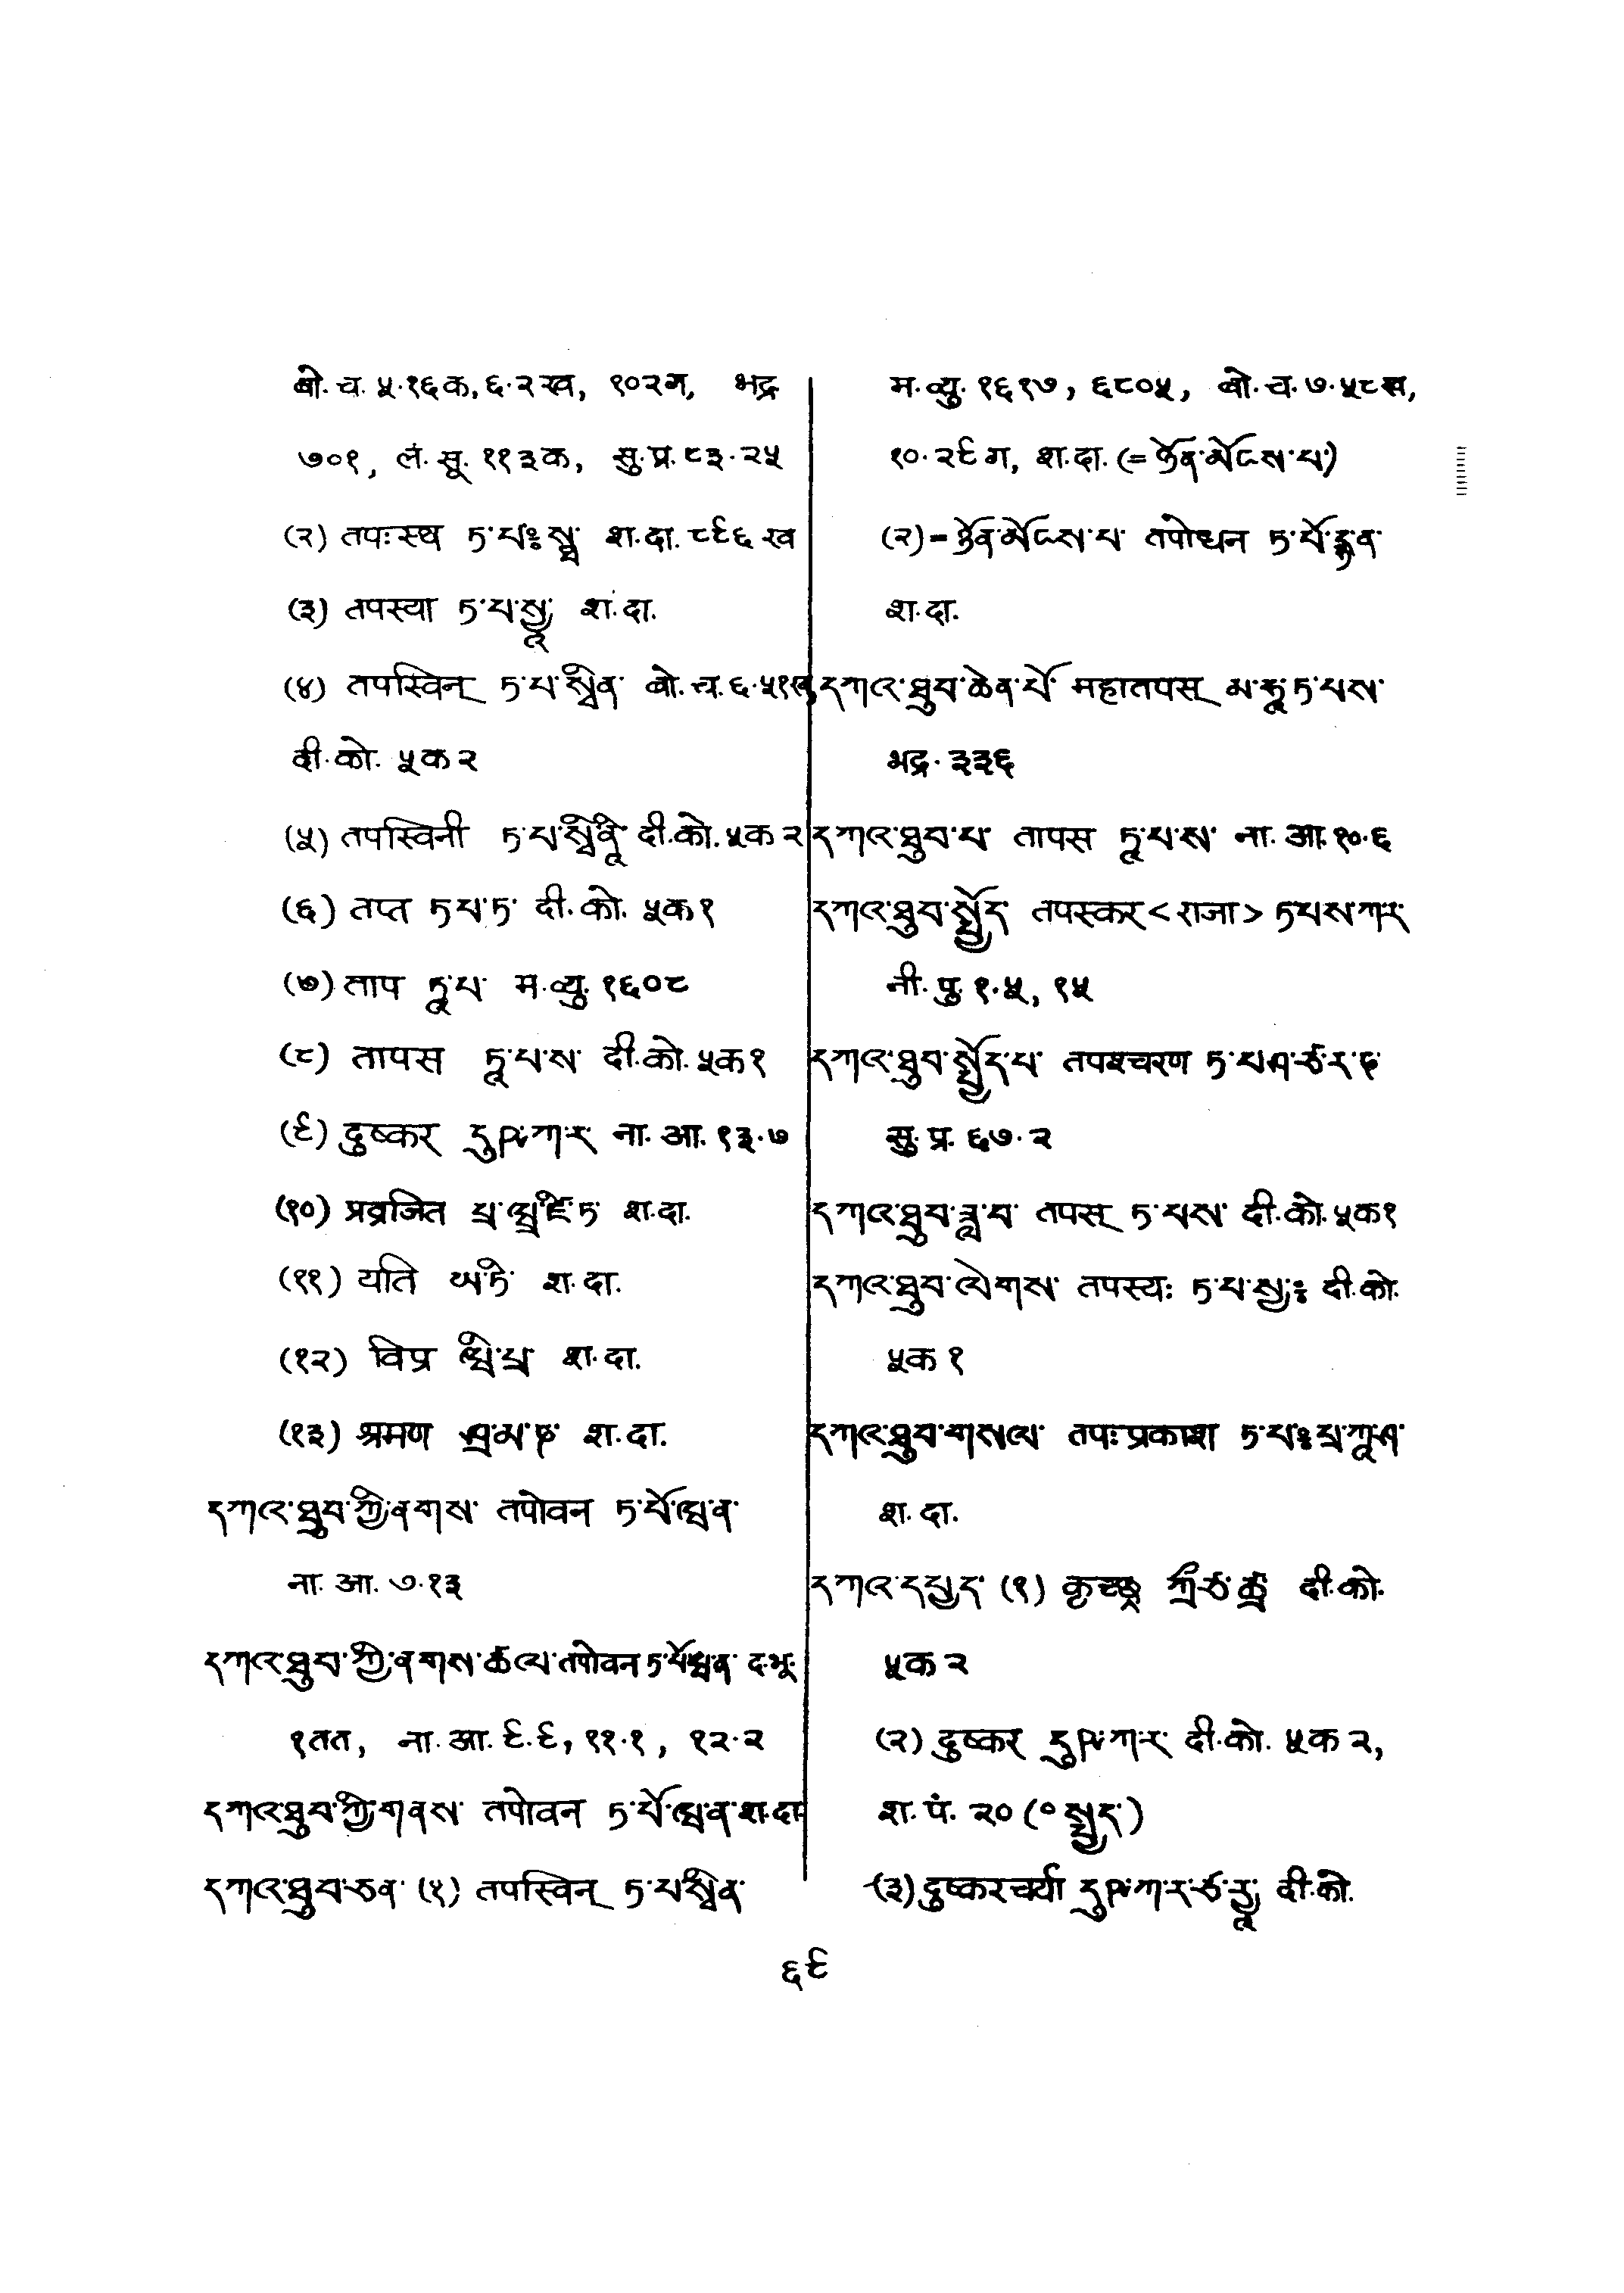 बो. च. ५.१६क, ६.२ख, १०२ग, भद्र
७०१, लं. सू. ११३क, सु. प्र. ८३.२५
(२) तपःस्थ ཏ་པཿསྠ་ श. दा. ८९६ ख
(३) तपस्या ཏ་པ་སྱཱ་ श. दा.
(४) तपस्विन् ཏ་པ་སྭིན་ बो. च. ६.५१ख,
दी. को. ५क २
(५) तपस्विनी ཏ་པ་སྭི་ནཱི་ दी. को. ५क २
(६) तप्त ཏ་པ་ཏ་ दी. को. ५क १
(७) ताप ཏཱ་པ་ म. व्यु. १६०८
(८) तापस ཏཱ་པ་ས་ दी. को. ५क १
(९) दुष्कर དུཥ་ཀ་ར་ ना. आ. १३.७
(१०) प्रव्रजित པྲ་བྲ་ཛི་ཏ་ श. दा.
(११) यति ཡ་ཏི་ श. दा.
(१२) विप्र ཝི་པྲ་ श. दा.
(१३) श्रमण ཤྲ་མ་ཎ་ श. दा.
དཀའ་ཐུབ་ཀྱི་ནགས་ तपोवन ཏ་པོ་ཝ་ན་
ना. आ. ७.१३
དཀའ་ཐུབ་ཀྱི་ནགས་ཚལ་ तपोवन ཏ་པོ་ཝ་ན་ द. भू.
१तत, ना. आ. ९.९, ११.१, १२.२
དཀའ་ཐུབ་ཀྱི་གནས་ तपोवन ཏ་པོ་ཝ་ན་ श. दा.
དཀའ་ཐུབ་ཅན་ (१) तपस्विन् ཏ་པ་སྭིན་
म. व्यु. १६१७, ६८०५, बो. च. ७.५८ख,
१०.२९ग, श. दा. (= ཉོན་མོངས་པ་)
(२) = ཉོན་མོངས་པ་ तपोधन ཏ་པོ་དྷ་ན་
श. दा.
དཀའ་ཐུབ་ཆེན་པོ་ महातपस् མ་ཧཱ་ཏ་པས་
भद्र. ३३६
དཀའ་ཐུབ་པ་ तापस ཏཱ་པ་ས་ ना. आ. १०.६
དཀའ་ཐུབ་སྤྱོད་ तपस्कर <राजा> ཏ་པས་ཀར་
नी. पु. १.५, १५
དཀའ་ཐུབ་སྤྱོད་པ་ तपश्चरण ཏ་པཤ་ཙ་ར་ཎ་
सु. प्र. ६७.२
དཀའ་ཐུབ་ཟླ་བ་ तपस् ཏ་པས་ दी. को. ५क१
དཀའ་ཐུབ་ལེགས་ तपस्यः ཏ་པ་སྱཿ दी. को.
५क १
དཀའ་ཐུབ་གསལ་ तपःप्रकाश ཏ་པཿཔྲ་ཀཱ་ཤ་
श. दा.
དཀའ་དཔྱད་ (१) कृच्छ्र ཀྲྀ་ཙ་ཚྲ་ दी. को.
५क २
(२) दुष्कर དུཥ་ཀ་ར་ दी. को. ५क २,
श. पं. २० (° སྤྱད་)
(३) दुष्करचर्या དུཥ་ཀ་ར་ཙ་རྱཱ་ दी. को.
६९